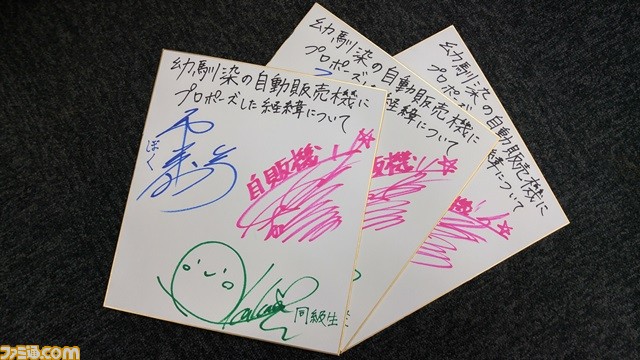 幼馴染の自動販売機に
プロポーズした経緯について
ぼく
自販機!!☆
同級生
幼馴染の自動販売機に
プロポーズした経緯について
販機!!☆
幼馴染の自動販売機に
プロポーズ
緯について
ファミ通.com